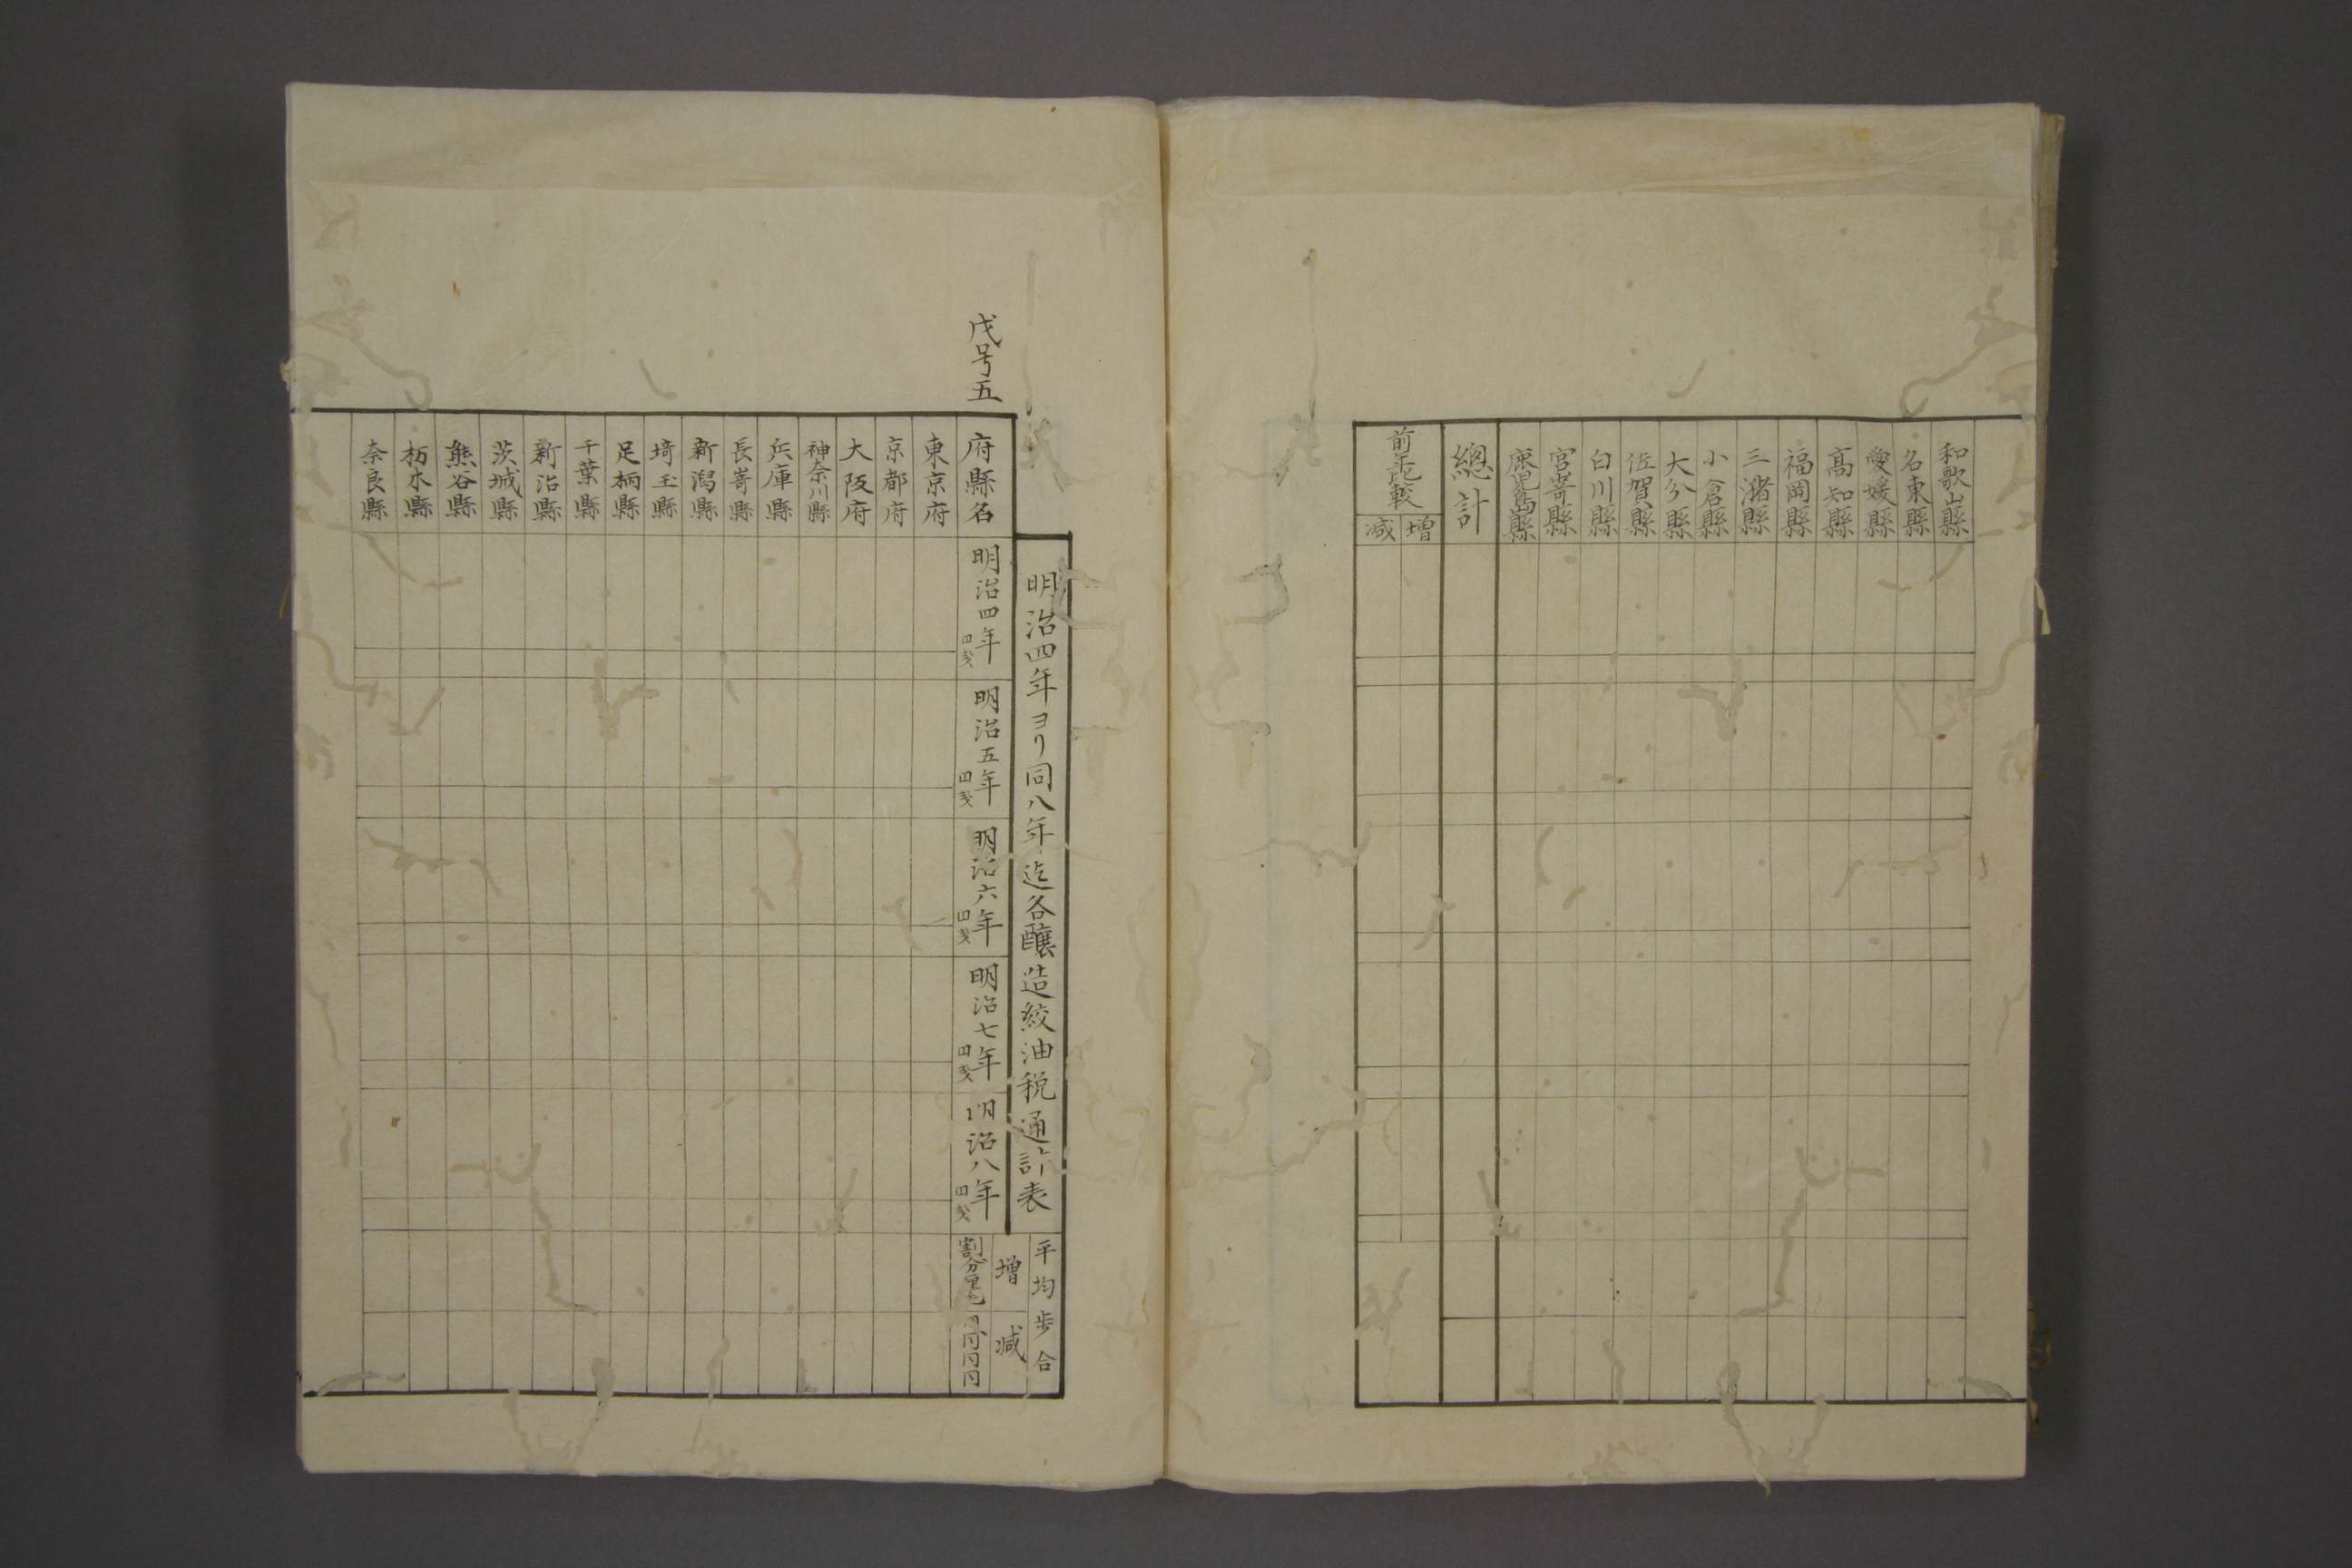 和歌山縣
名東縣
愛媛縣
高知縣
福岡縣
三潴縣
小倉縣
大分縣
佐賀縣
白川縣
宮嵜縣
鹿児島縣
總計
前年比較
増
減
戊号五
明治四年ヨリ同八年迄各醸造絞油税通計表
平均歩合
増
減
府縣名
明治四年
明治五年
明治六年
明治七年
明治八年
割分厘毛
東京府
京都府
大阪府
神奈川縣
兵庫縣
長嵜縣
新潟縣
埼玉縣
足柄縣
千葉縣
新治縣
茨城縣
熊谷縣
栃木縣
奈良縣